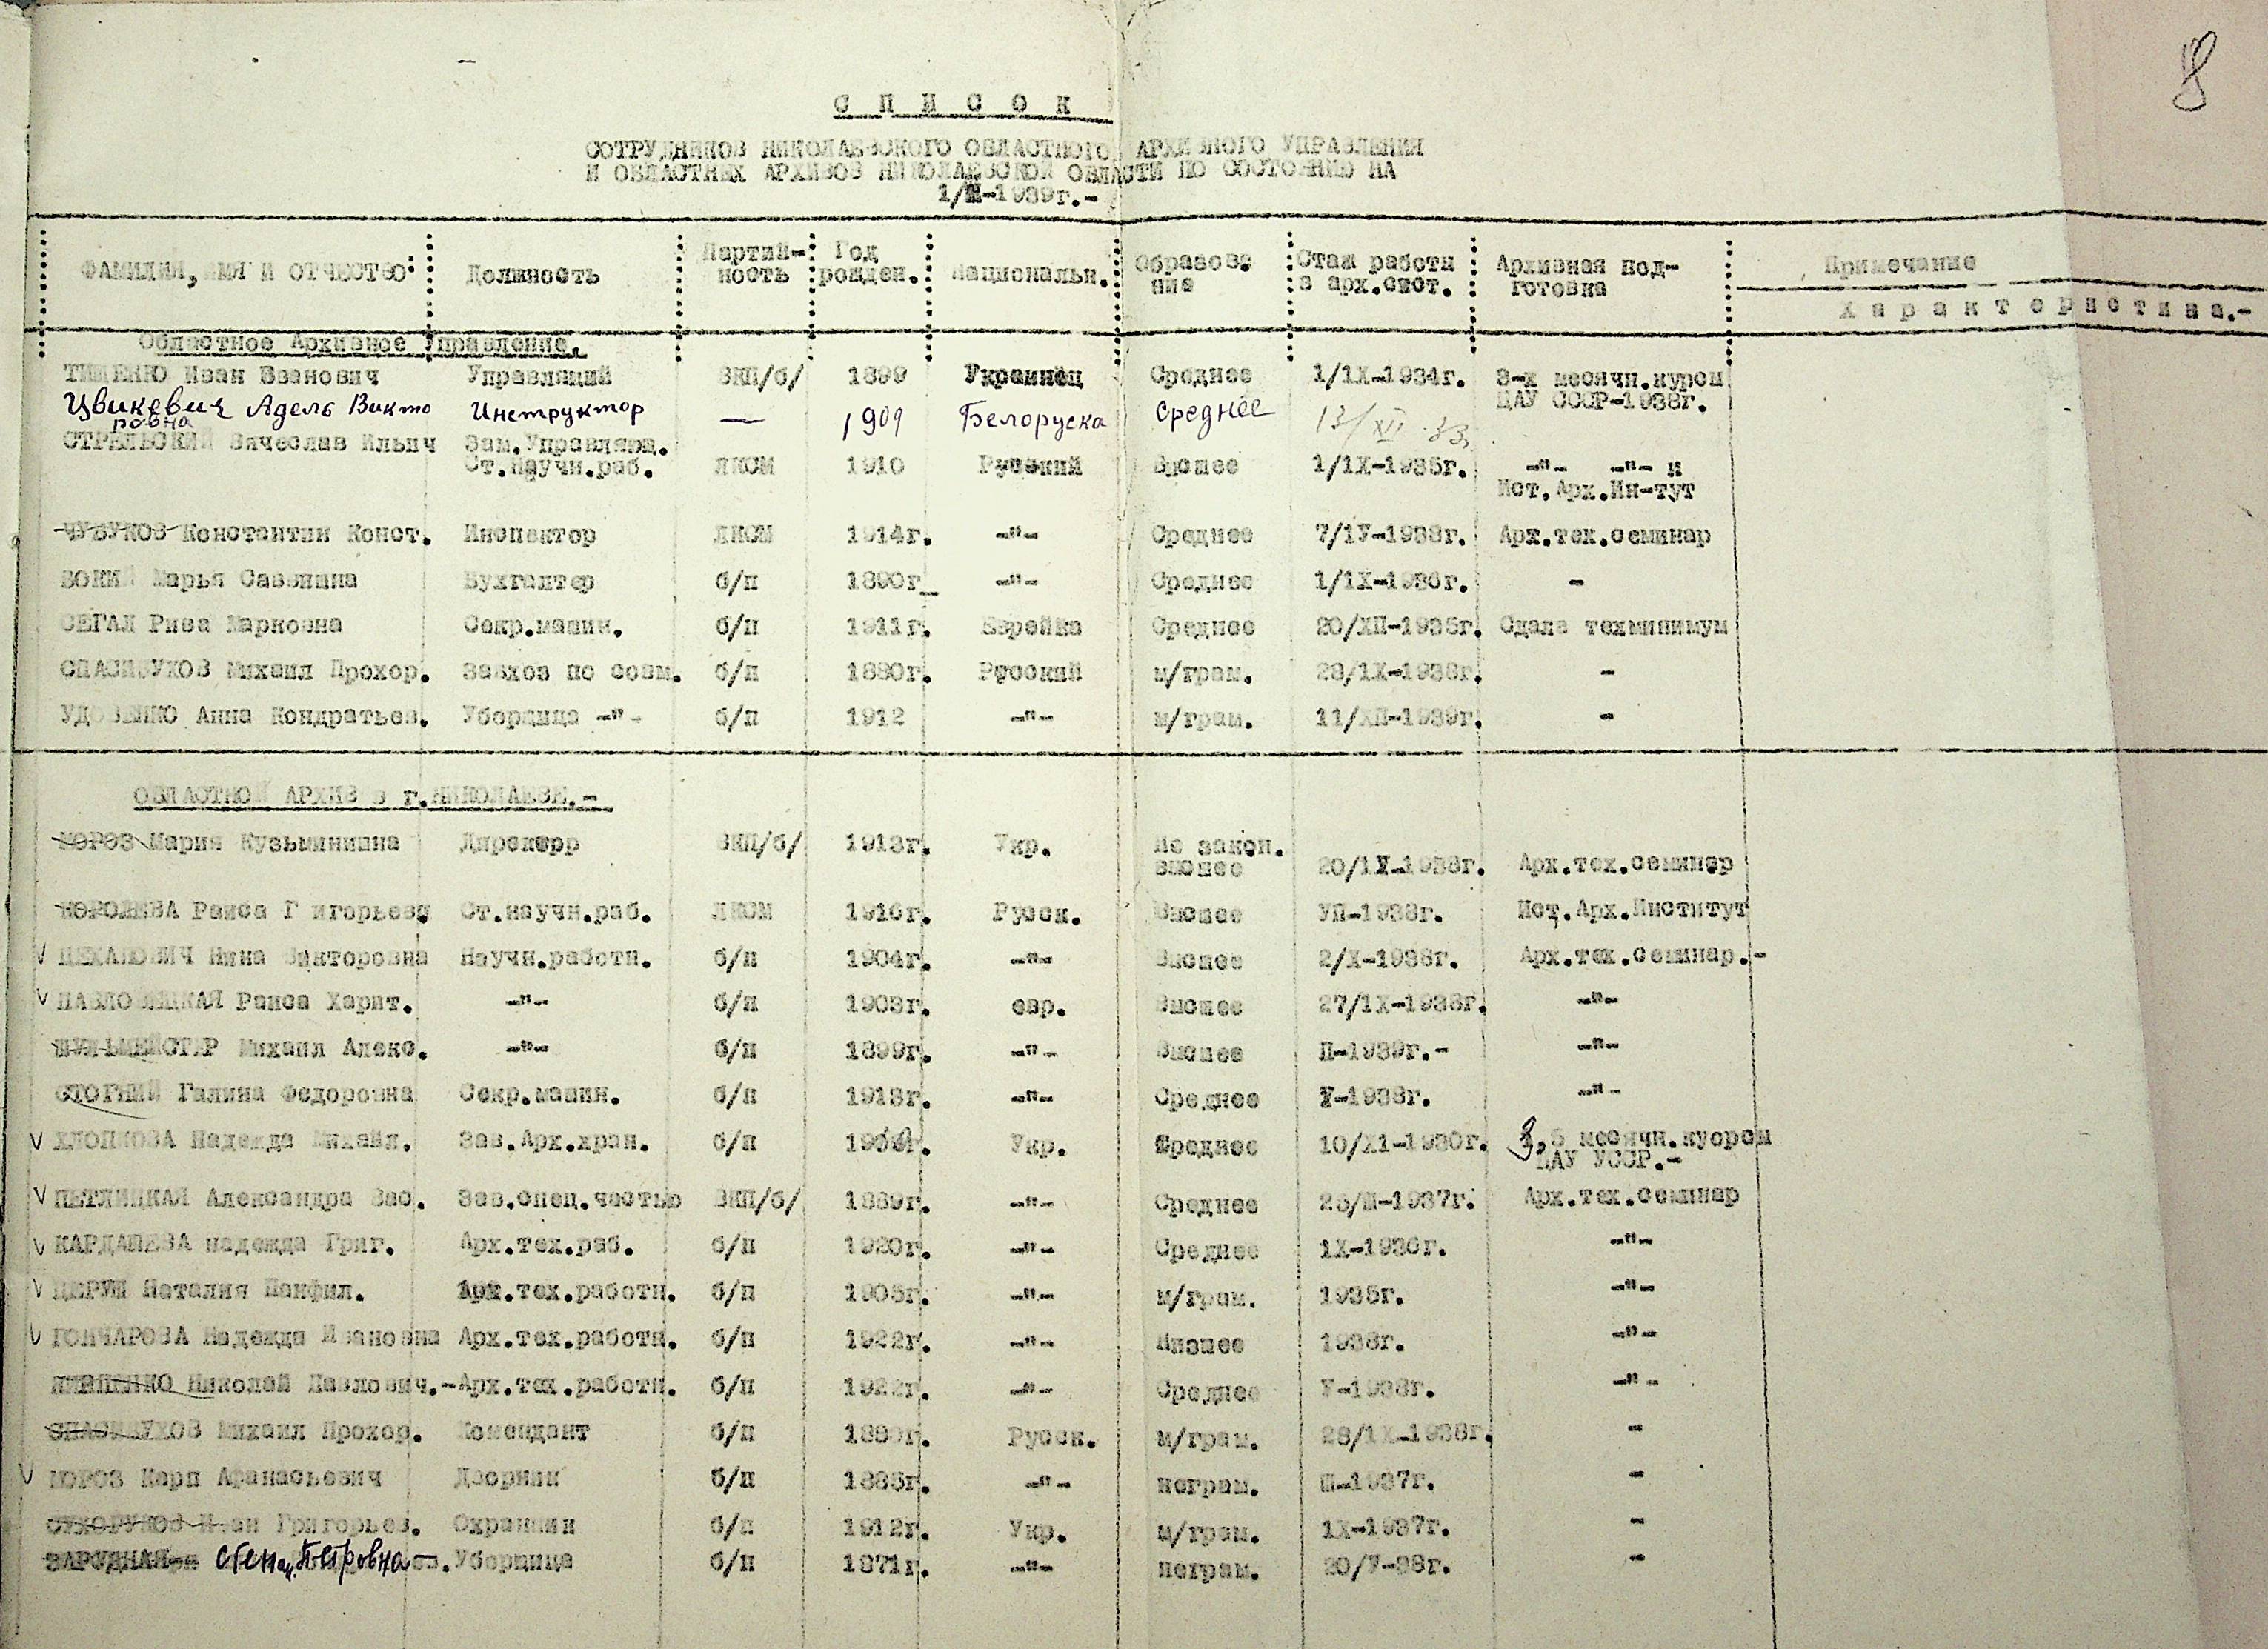 8
С П И С О К
СОТРУДНИКОВ НИКОЛАЕВСКОГО ОБЛАСТНОГО АРХИВНОГО УПРАВЛЕНИЯ
И ОБЛАСТНЫХ АРХИВОВ НИКОЛАЕВСКОЙ ОБЛАСТИ ПО СОСТОЯНИЮ НА
1/Ш-1939г.-
ФАМИЛИЯ, ИМЯ И ОТЧЕСТВО Должность Партий- Год Национальн. Образова Стаж работы Архивная под- Примечание
ность рожден. ние в арх.сист. готовка Характеристика.-
Областное Архивное Управление.
ТИЩЕНКО Иван Иванович Управлящий ВКП/б/ 1899 Украинец Среднее 1/1Х-1934г. 3-х месячн.курсы
ЦАУ СССР-1938г.
Цвикевич Адель Викто Инструктор — 1909 Белоруска Среднее 13/XII-33.
ровна
СТРЕЛЬСКИЙ Вячеслав Ильич Зам.Управляющ.
Ст.Научн.раб. ЛКСМ 1910 Русский Высшее 1/1Х-1935г. -"- -"- и
Ист.Арх.Ин-тут
ЧУБУКОВ Константин Конст. Инспектор ЛКСМ 1914г. -"- Среднее 7/1У-1938г. Арх.тех.семинар
Марья Саввишна Бухгалтер б/п 1890г. -"- Среднее 1/1Х-1936г. -
СЕГАЛ Рива Марковна Секр.машин. б/п 1911г. Еврейка Среднее 20/ХП-1935г. Сдала техминимум
СПАСИБУХОВ Михаил Прохор. Завхоз по совм. б/п 1880г. Русский м/грам. 28/1Х-1938г. -
УДОВЕНКО Анна Кондратьев. Уборщица -"- б/п 1912 -"- м/грам. 11/ХП-1939г. -
ОБЛАСТНОЙ АРХИВ в г.НИКОЛАЕВЕ.-
МОРОЗ Мария Кузьминишна Директор ВКП/б/ 1913г. Укр. Не закон.
высшее 20/1У-1938г. Арх.тех.семинар
КОРОЛЕВА Раиса Г игорьевн Ст.научн.раб. ЛКСМ 1916г. Русск. Высшее УП-1938г. Ист.Арх.Институт
Нина Викторовна Научн.работн. б/п 1904г. -"- Высшее 2/Х-1938г. Арх.тех.семинар.-
ПАВЛОВИЦКАЯ Раиса Харит. -"- б/п 1903г. евр. Высшее 27/1Х-1938г. -"-
ШУЛЬМЕЙСТЕР Михаил Алекс. -"- б/п 1899г. -"- Высшее П-1939г.- -"-
СТОГНИЙ Галина Федоровна Секр.машин. б/п 1918г. -"- Среднее У-1938г. -"-
ХЛОПКОВА Надежда Михайл. Зав.Арх.хран. б/п Укр. Среднее 10/Х1-1930г. 3,5 месячн.куорсы
ЦАУ УССР.-
ПЕТЛИЦКАЯ Александра Вас. Зав.спец.частью ВКП/б/ 1889г. -"- Среднее 23/Ш-1937г. Арх.тех.семинар
КАРДАШЕВА надежда Григ. Арх.тех.раб. б/п 1920г. -"- Среднее 1Х-1936г. -"-
Наталия Панфил. Арх.тех.работн. б/п 1905г. -"- м/грам. 1935г. -"-
ГОНЧАРОВА Надежда Ивановна Арх.тех.работн. б/п 1922г. -"- Низшее 1938г. -"-
Николай Павлович.-Арх.тех.работн. б/п 1922г. -"- Среднее У-1938г. -"-
СПАСИБУХОВ Михаил Прохор. Комендант б/п 1880г. Русск. м/грам. 28/1Х-1938г. -
МОРОЗ Карп Афанасьевич Дворник б/п 1885г. -"- неграм. Ш-1937г. -
СУХОРУКОВ Иван Григорьев. Охранник б/п 1912г. Укр. м/грам. 1Х-1937г. -
ЗАРУДНАЯ Степан. Петровна Уборщица б/п 1871г. -"- неграм. 20/У-38г. -